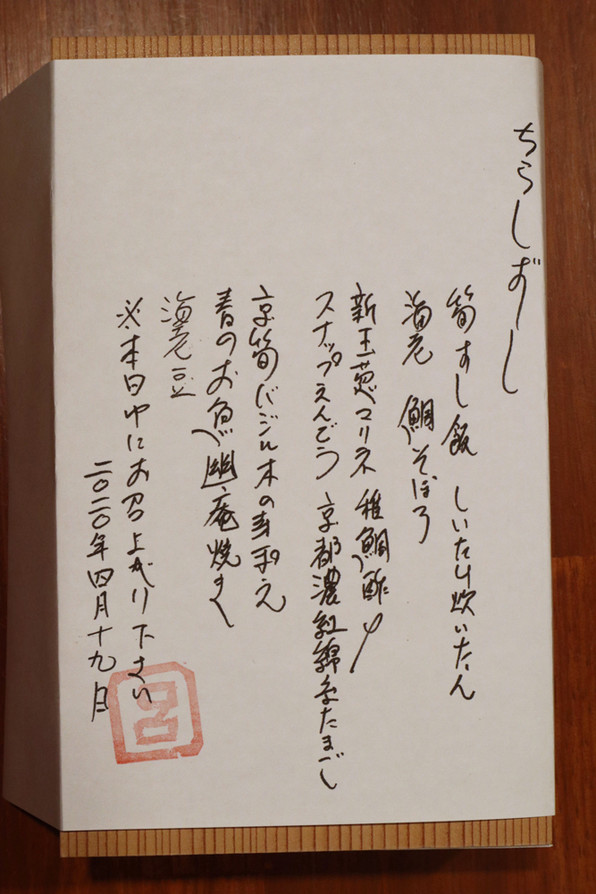 ちらしずし
筍すし飯 しいたけ炊いたん
海老 鯛そぼろ
新玉葱マリネ 稚鯛酢〆
スナップえんどう 京都濃紅錦糸たまご
京筍バジル木の芽和え
春のお魚 幽庵焼き
海老豆
※本日中にお召し上がり下さい
二〇二〇年四月十九日
呂